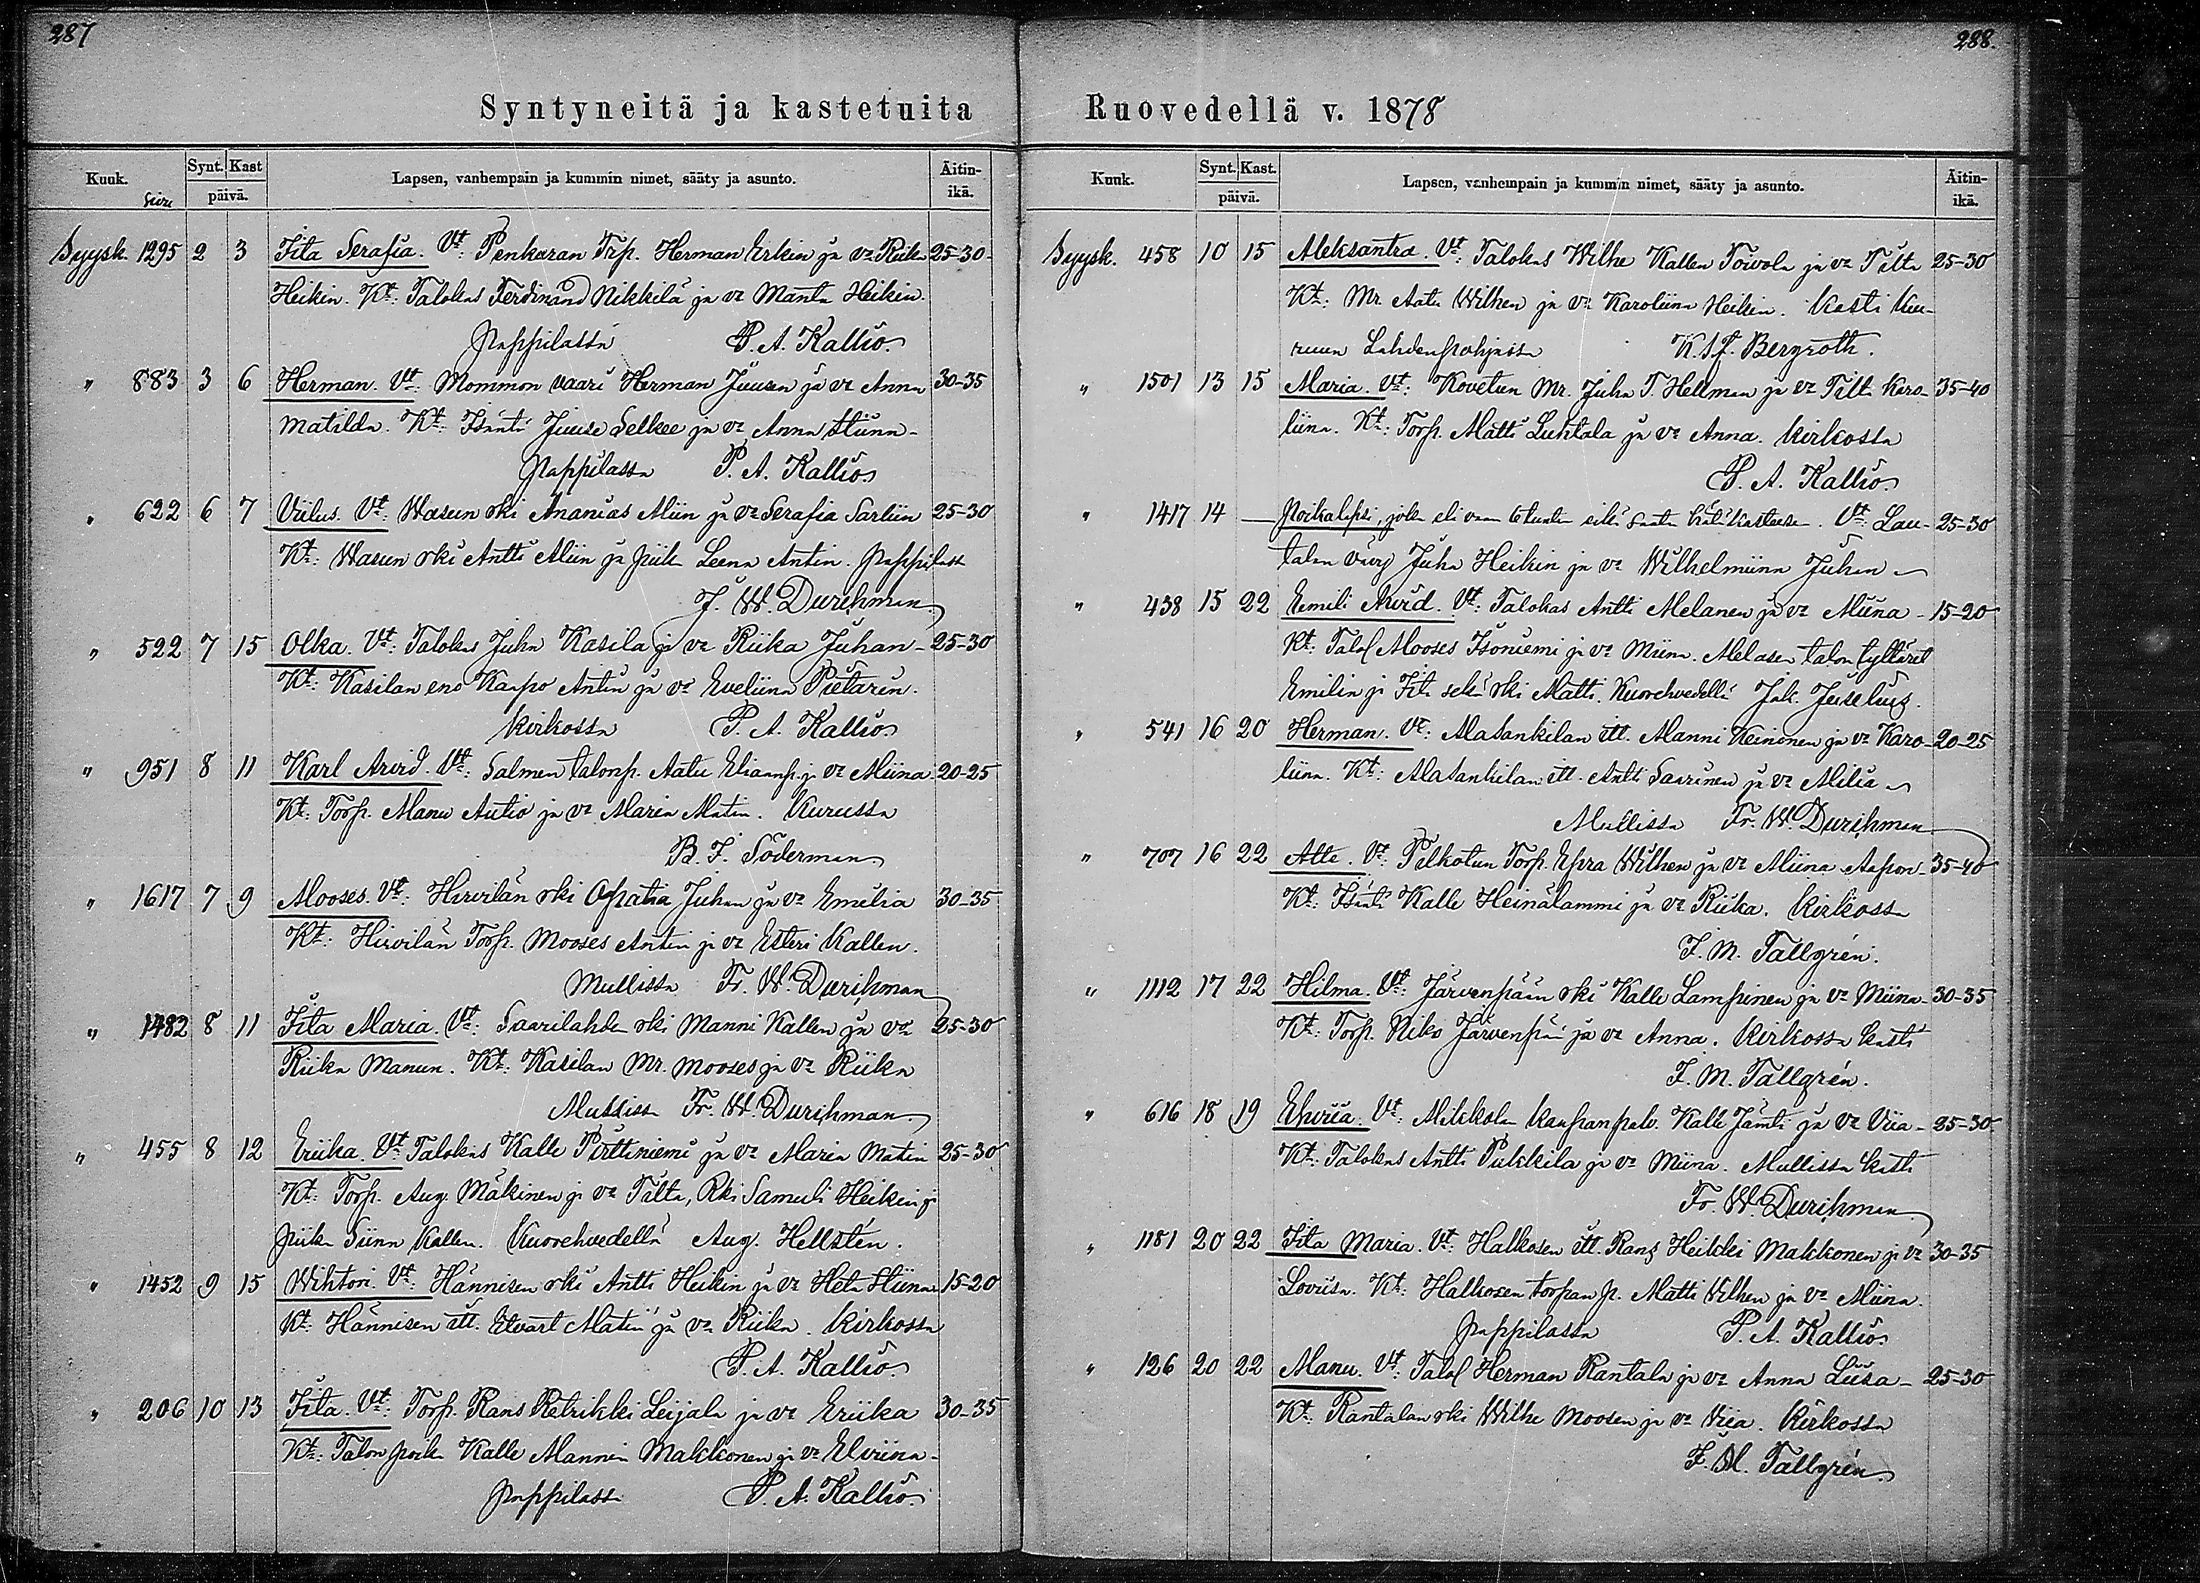 287
Syntyneitä ja kastetuita
Kuuk. Synt. Kast päivä. Lapsen, vanhempain ja kummin nimet, sääty ja asunto. Äitin-ikä.
Syysk. 1295 2 3 Fita Serafia. Vt: Penkaran Trp. Herman Erkin ja va Riika 25-30
Heikin. Kt: Talokas Ferdinand Nikkilä ja va Manta Heikin.
Pappilassa P. A. Kallio
" 883 3 6 Herman. Vt: Mommon vaari Herman Juusen ja va Anna 30-35
Matilda. Kt: Isäntä Juuse Selkee ja va Anna Stiina
Pappilassa P. A. Kallio
" 622 6 7 Viilus. Vt: Wasun rki Ananias Miin ja va Serafia Sarliin 25-30
Kt: Wasun rki Antti Miin ja piika Leena Antin. Pappilass
J. W. Durchman
" 522 7 15 Olka. Vt: Talokas Juha Kasila ja va Riika Juhan 25-30
Kt: Kasilan eno Kaapo Antin ja va Eveliina Pietarin.
Kirkossa P. A. Kallio
" 951 8 11 Karl Arvid. Vt: Salmen talonp. Aatu Elianp. ja va Miina 20-25
Kt: Torp. Manu Autio ja va Maria Matin. Kurussa
B. F. Söderman
" 1617 7 9 Mooses. Vt: Hirvilän rki Juhan ja va Emilia 30-35
Kt: Hirvilän Torp. Mooses Antin ja va Esteri Kallen.
Mullissa Fr. W. Durchman
" 1482 8 11 Fita Maria. Vt: Saarilahden rki Manni Kallen ja va 25-30
Riika Manun. Kt: Kasilan Mr. Mooses ja va Riika
Mullissa Fr. W. Durchman
" 455 8 12 Eriika. Vt: Talokas Kalle Pirttiniemi ja va Maria Matin 25-30
Kt: Torp. Aug. Mäkinen ja va Tilta, Rki Samuli Heikin ja
piika Siina Kallen. Kuorehvedellä Aug. Hellstén.
" 1452 9 15 Wihtori. Vt: Hännisen rki Antti Heikin ja va Heta Stiina 15-20
Kt: Hännisen itt. Etvart Matin ja va Riika. Kirkossa
P. A. Kallio
" 206 10 13 Fita. Vt: Torp. Rans Retrikki Leijala ja va Eriika 30-35
Kt: Talon poika Kalle Mannin Makkonen ja va Elviina
Pappilassa P. A. Kallio
288.
Ruovedellä v. 1878
Kuuk. Synt. Kast. päivä. Lapsen, vanhempain ja kummin nimet, sääty ja asunto. Äitin-ikä.
Syysk. 458 10 15 Aleksantra. Vt: Talokas Wilhe Kallen Toivola ja va Tilta 25-30
Kt: Mr. Aatu Wilhen ja va Karoliina Heikin. Kasti Kuu-
ruun Lahdenpohjassa K. Bergroth.
" 1501 13 15 Maria. Vt: Kovetun Mr. Juha T. Hellman ja va Tilta Karo- 35-40
liina. Kt: Torp. Matti Luhtala ja va Anna. Kirkossa
P. A. Kallio
" 1417 14 — Poikalapsi, joka eli vaan 6 tuntia eikä saatu hätäkastetta. Vt: Lau- 25-30
talan Juha Heikin ja va Wilhelmiina Juhan
" 438 15 22 Eemili Arvid. Vt: Talokas Antti Melanen ja va Miina 15-20
Kt: Talol Mooses Isoniemi ja va Miina. Melasen talon tyttäret
Emilia ja Fita sekä rki Matti. Kuorehvedellä Jak. Juselius.
" 541 16 20 Herman. Vt: Matankilan itt. Manni Keinonen ja va Karo- 20-25
liina. Kt: Matankilan itt. Antti Saarinen ja va Milia
Mullissa Fr. W. Durchman
" 707 16 22 Atte. Vt: Pelkotun Torp. Epra Wilhen ja va Miina Aapon 35-40
Kt: Isäntä Kalle Heinälammi ja va Riika. Kirkossa
F. M. Tallgrén.
" 1112 17 22 Hilma. Vt: Järvenpään rki Kalle Lampinen ja va Miina 30-35
Kt: Torp. Niko Järvenpää ja va Anna. Kirkossa kasti
F. M. Tallgrén.
" 616 18 19 Elviia. Vt: Mikkola kaupanpalv. Kalle Jämti ja va Viia 25-30
Kt: Talokas Antti Pukkila ja va Miina. Mullissa kasti
Fr. W. Durchman
" 1181 20 22 Fita Maria. Vt: Halkosen itt. Rans Heikki Makkonen ja va 30-35
Loviisa. Kt: Halkosen torpan p. Matti Vilhen ja va Miina.
Pappilassa P. A. Kallio
" 126 20 22 Manu. Vt: Talol Herman Rantala ja va Anna Liisa 25-30
Kt: Rantalan rki Wilhe Moosen ja va Viia. Kirkossa
F. M. Tallgrén